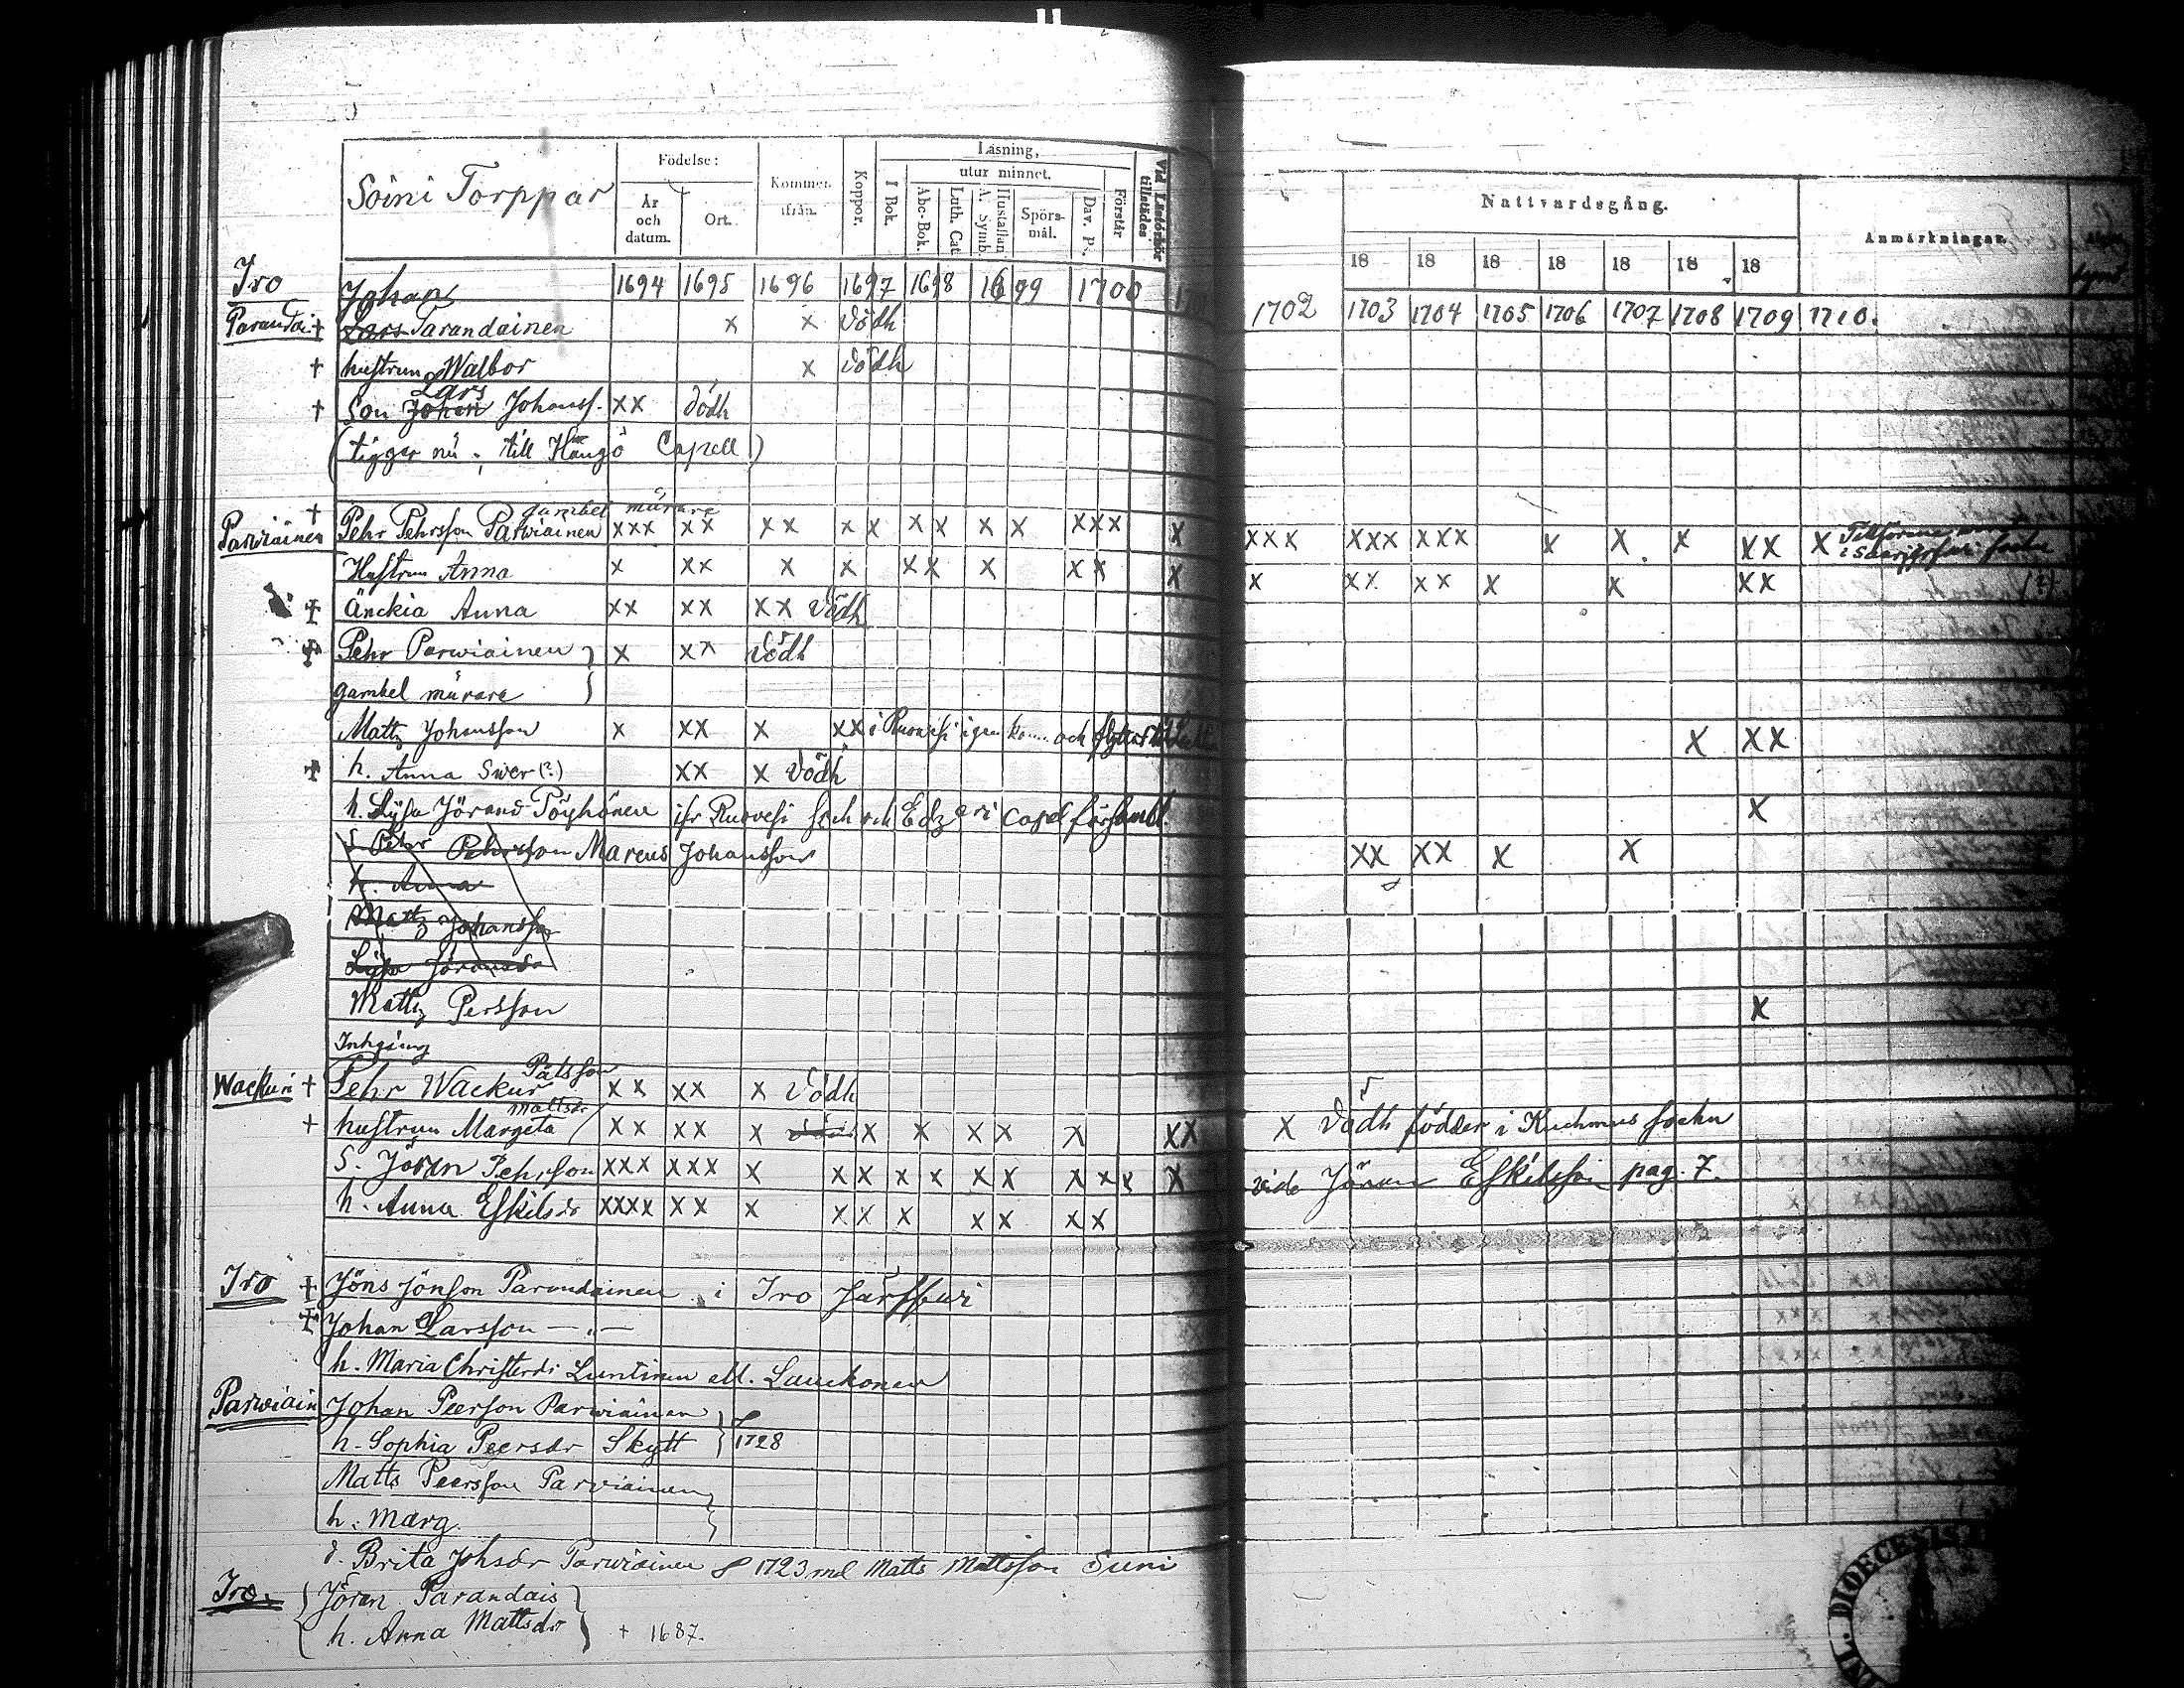 Soini Torppar
Födelse:
År och datum.
Ort.
Kommen ifrån.
Koppor.
Läsning,
I Bok.
utur minnet.
Abc-Bok.
Luth. Cat
A. Symb.
Hustaflan
Spörsmål.
Dav. P.
Förstår
Vid Läsförhör tillstädes
Nattvardsgång.
Anmärkningar.
18 18 18 18 18 18 18
1694 1695 1696 1697 1698 1699 1700
1702 1703 1704 1705 1706 1707 1708 1709 1710.
Iro
Johan
Parandai + Lars Tarandainen x x dödh
+ hustrun Walbor x dödh
Lars
+ Son Johan Johanss. xx dödh
(tigger nu; till Hängö Capell)
gambel mürare
+
Parwiäinen Pehr Pehrsson Parwiainen xxx xx xx x x x x x x xxx x xxx xxx xxx x x x xx x
i Saarijerfwi sochn
Hustrun Anna x xx x x xx x xx x x xx xx x x xx (?)
+ Änckia Anna xx xx xx dödh
+ Pehr Parwiainen } x xx dödh
gambel mürare }
Mattz Johansson x xx x xx i Ruovesi igen kom och x xx
+ h. Anna Swer (?) xx x dödh
h. Lÿsa Jörand Pöyhönen ifr Ruovesi soch och Edzeri Capel försambl. x
S. Pehr Pehrsson Marcus Johansson xx xx x x
h. Anna
Mattz Johansson
Lÿsa Jörandr
Mattz Persson x
Inhysing
Pålsson
Wackuri + Pehr Wackur xx xx x dödh
Mattsdr
+ hustrun Margeta xx xx x x x x x x xx x dödh födder i Kuchmus sochn
S. Jöran Pehrson xxx xxx x x x x x x x x x x x vide Jöran Eskilsson pag. 7.
h. Anna Eskilsdr xxxx xx x x x x x x x x
Iro + Jöns Jönson Parandainen i Iro Järffwi
+ Johan Larsson — „ —
h. Maria Christerdr Luntinen ell. Lauckonen
Parwiain Johan Peerson Parwiainen }
h. Sophia Peersdr Skytt } 1728
Matts Peersson Parwiainen }
h. Marg. }
d. Brita Johsdr Parwiainen 1723 med Matts Mattsson Suni
Iro. { Jöran Parandais }
{ h. Anna Mattsdr } + 1687.
DIOECESIS